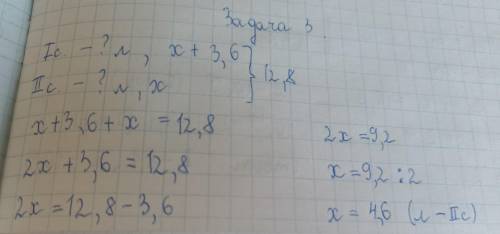 Задача 3.
Iс – ? л, x + 3,6
IIс – ? л, x
12,8
x+3,6+x =12,8
2x +3,6 =12,8
2x =12,8-3,6
2x =9,2
x=9,2:2
x = 4,6 (л – IIс)